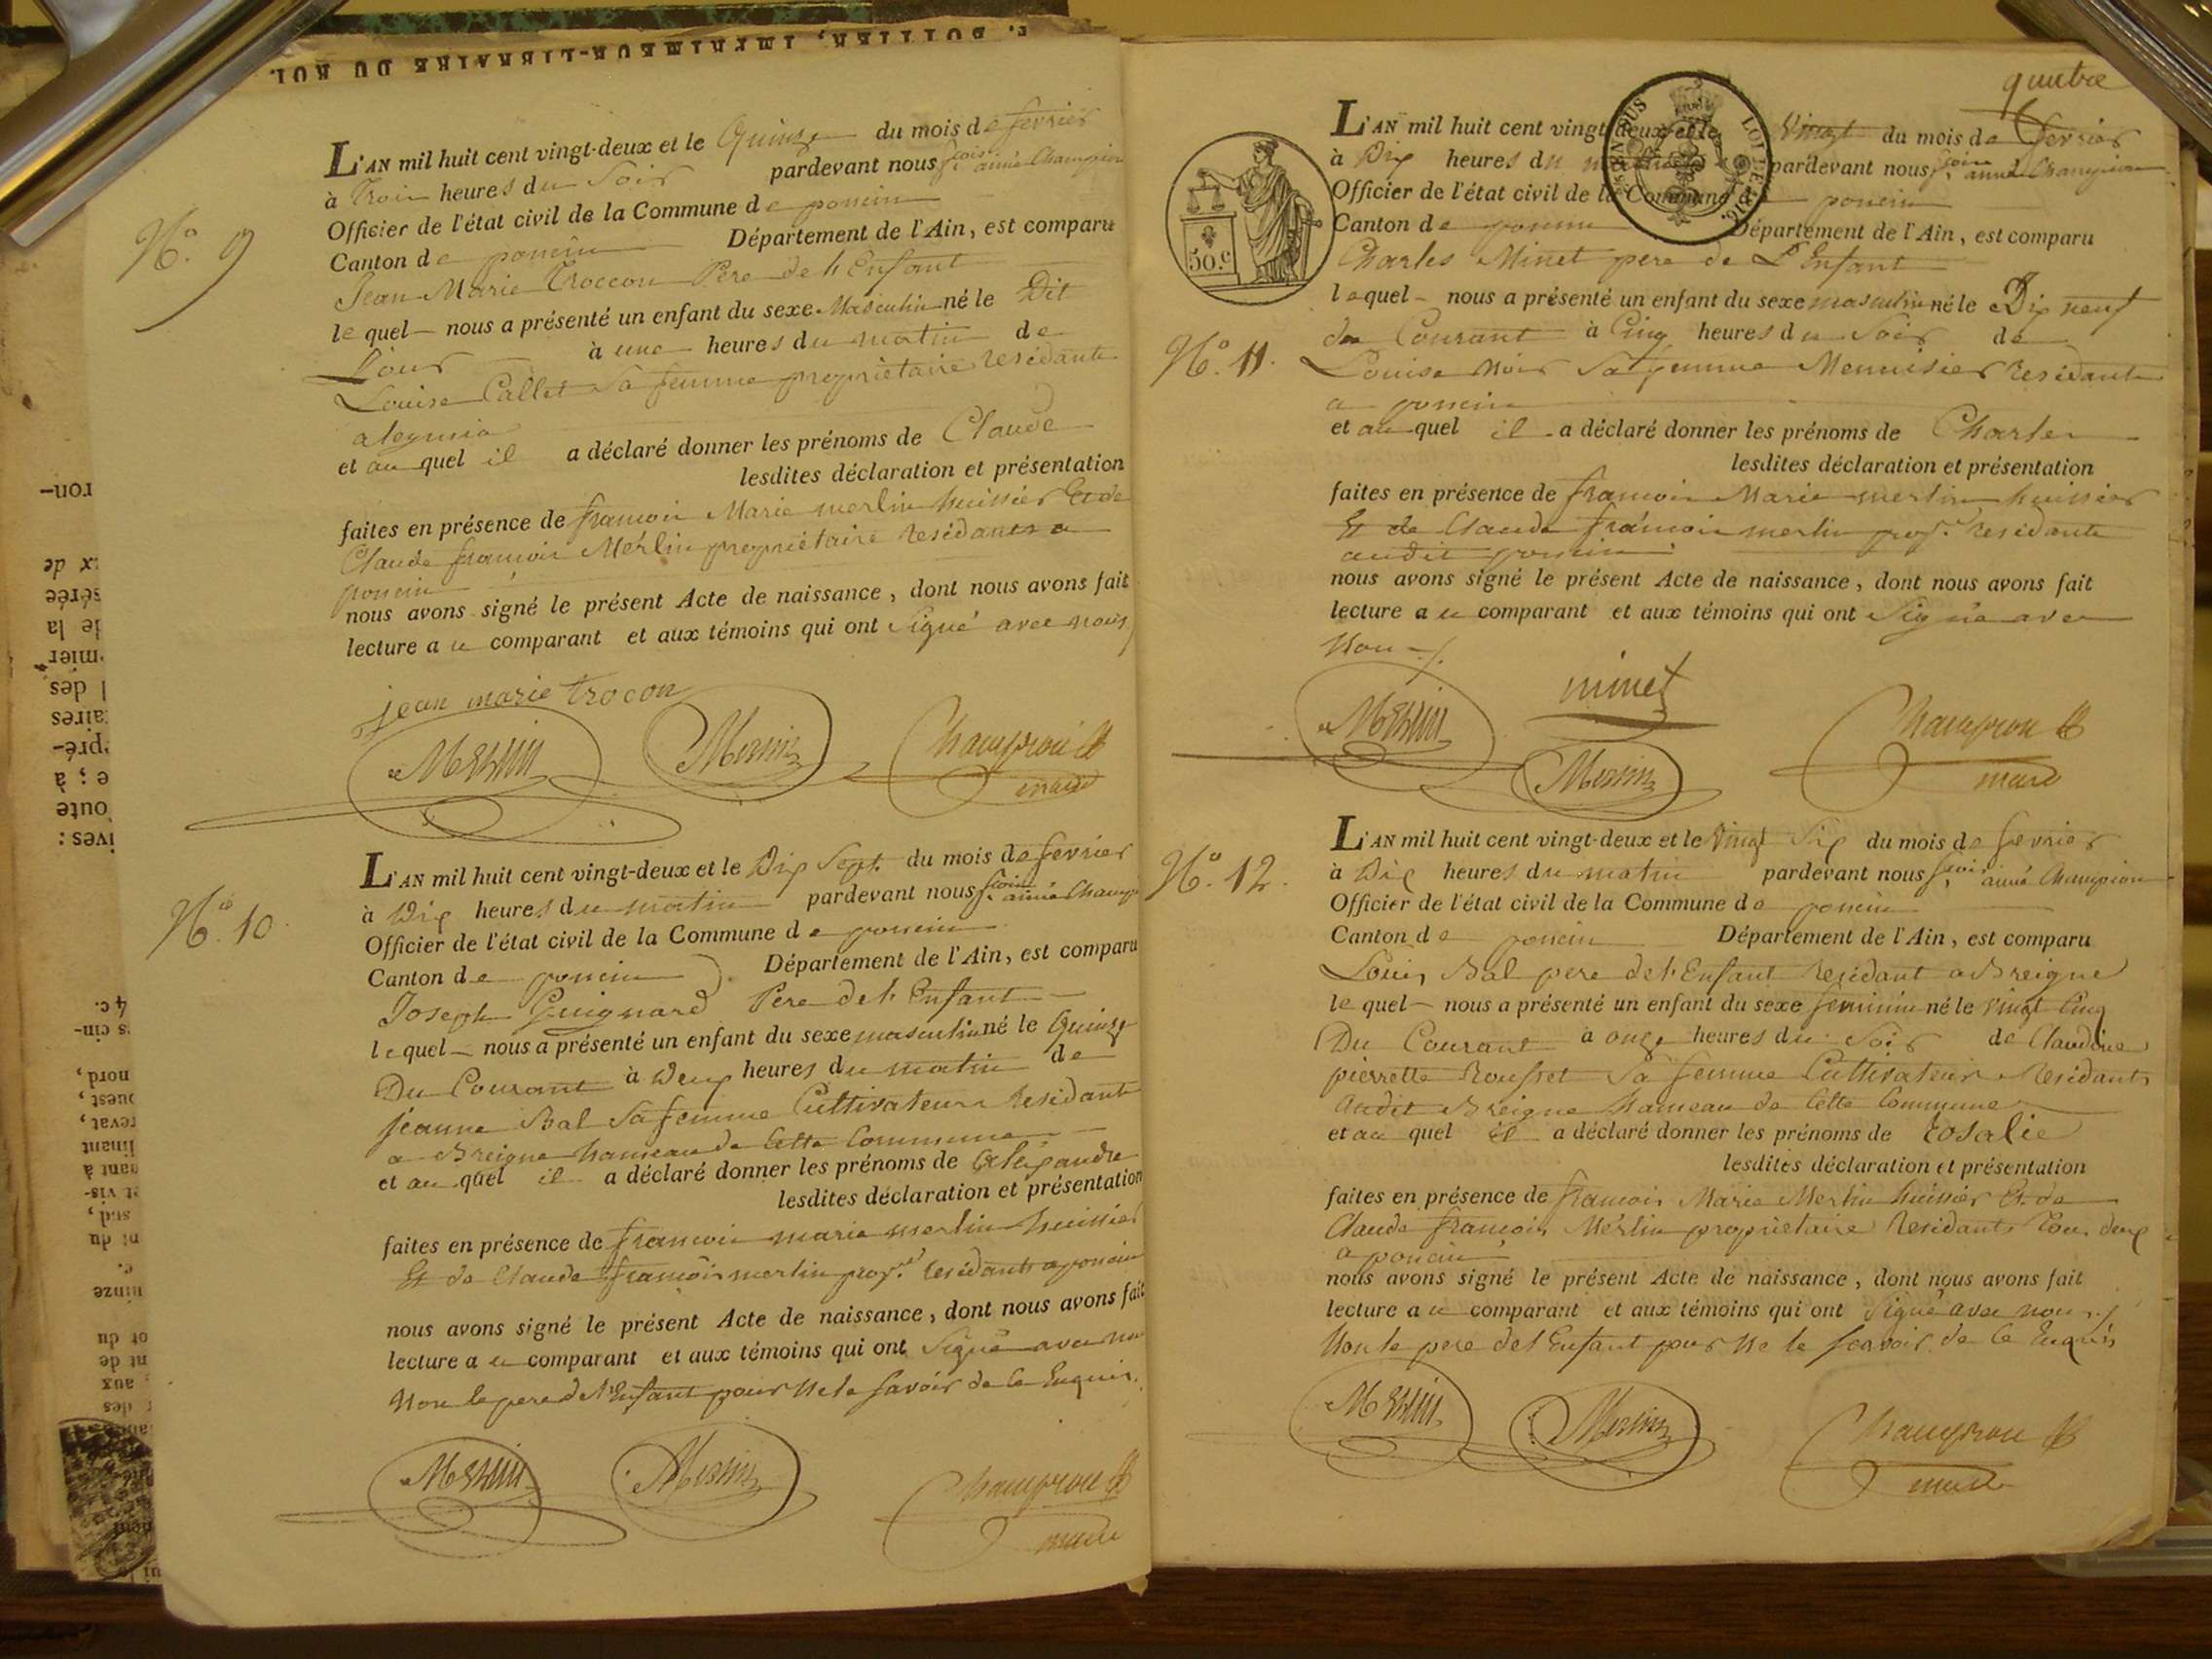 F. BOTTIER, IMPRIMEUR-LIBRAIRE DU ROI.
N.o 9
L'AN mil huit cent vingt-deux et le Quinze du mois de fevrier
à trois heures du Soir pardevant nous f.cois aimé Champion
Officier de l'état civil de la Commune de poncin
Canton de poncin Département de l'Ain, est comparu
Jean Marie Troccon Pere de l'Enfant
lequel nous a présenté un enfant du sexe Masculin né le Dit
Jour à une heures du matin de
Louise Callet Sa femme propriétaire residants
a
et au quel il a déclaré donner les prénoms de Claude
lesdites déclaration et présentation
faites en présence de francois Marie merlin huissier Et de
Claude francois Merlin propriétaire Residants a
poncin
nous avons signé le présent Acte de naissance, dont nous avons fait
lecture au comparant et aux témoins qui ont Signé avec nous
jean marie trocon
Merlin Merlin Champion
maire
N.o 10.
L'AN mil huit cent vingt-deux et le Dix Sept du mois de fevrier
à Dix heures du matin pardevant nous f.cois aimé Champion
Officier de l'état civil de la Commune de poncin
Canton de poncin Département de l'Ain, est comparu
Joseph Guignard Pere de l'Enfant
lequel nous a présenté un enfant du sexe masculin né le Quinze
Du Courant à Deux heures du matin de
jeanne Bal Sa femme Cultivateurs Residant
a Breigne hameau de Cette Commune
et au quel il a déclaré donner les prénoms de Alexandre
lesdites déclaration et présentation
faites en présence de francois marie merlin huissier
Et de Claude francois merlin prop.re residants a poncin
nous avons signé le présent Acte de naissance, dont nous avons fait
lecture au comparant et aux témoins qui ont Signé avec nous
Non le pere de l'Enfant pour ne le savoir de ce Enquis.
Merlin Merlin Champion
maire
quatre
50.c
N.o 11.
L'AN mil huit cent vingt-deux et le Vingt du mois de fevrier
à Dix heures du matin pardevant nous f.cois aimé Champion
Officier de l'état civil de la Commune de poncin
Canton de poncin Département de l'Ain, est comparu
Charles Minet pere de L'Enfant
lequel nous a présenté un enfant du sexe masculin né le Dix neuf
du Courant à Cinq heures du Soir de
Louise Noir Sa femme Menuisier Residants
a poncin
et au quel il a déclaré donner les prénoms de Charles
lesdites déclaration et présentation
faites en présence de francois Marie merlin huissier
Et de Claude francois merlin prop.re residants
audit poncin
nous avons signé le présent Acte de naissance, dont nous avons fait
lecture au comparant et aux témoins qui ont Signé avec
Nous
Merlin minet Champion
Merlin maire
N.o 12.
L'AN mil huit cent vingt-deux et le Vingt Six du mois de fevrier
à Dix heures du matin pardevant nous f.cois aimé Champion
Officier de l'état civil de la Commune de poncin
Canton de poncin Département de l'Ain, est comparu
Louis Bal pere de l'Enfant Residant a Breigne
lequel nous a présenté un enfant du sexe feminin né le Vingt Cinq
Du Courant à onze heures du Soir de Claudine
pierrette Rousset Sa femme Cultivateur Residants
audit Breigne hameau de Cette Commune
et au quel il a déclaré donner les prénoms de Rosalie
lesdites déclaration et présentation
faites en présence de francois Marie Merlin huissier Et de
Claude francois Merlin propriétaire Residants Tous deux
a poncin
nous avons signé le présent Acte de naissance, dont nous avons fait
lecture au comparant et aux témoins qui ont Signé avec nous
Non le pere de l'Enfant pour ne le scavoir de ce Enquis
Merlin Merlin Champion
maire